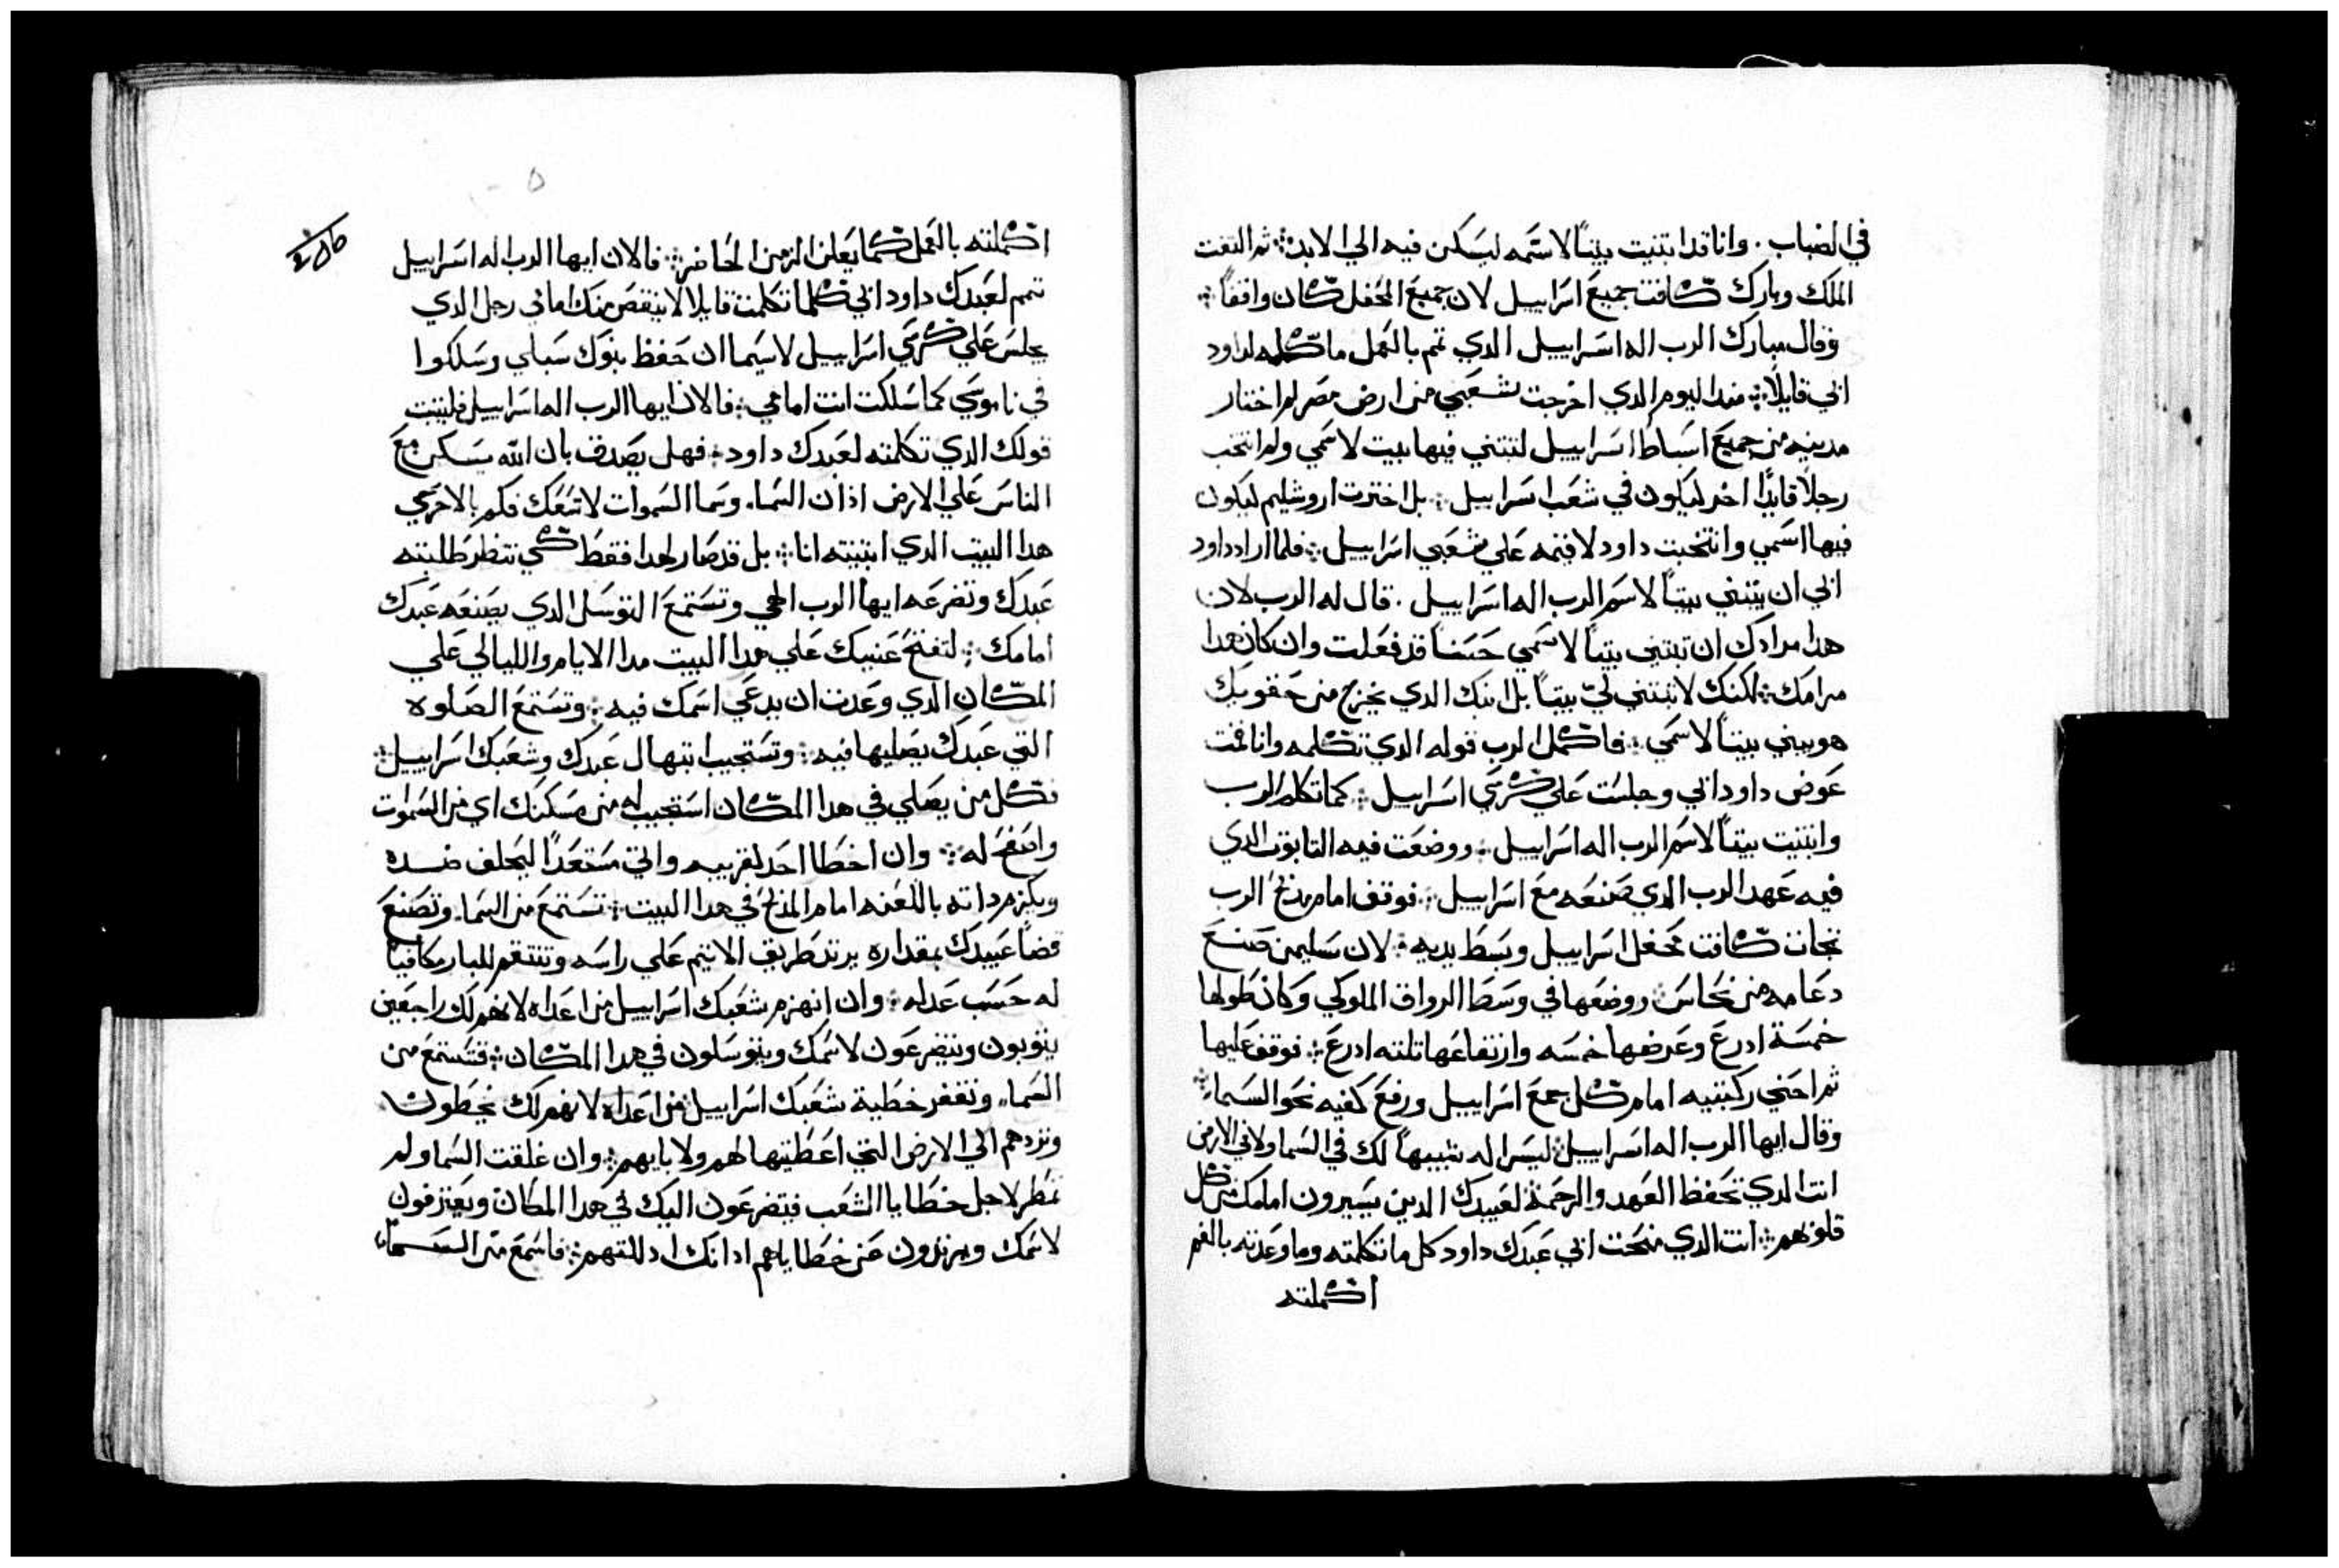 في الضباب. وانا قد ابتنيت بيتاً لاسمه ليسكن فيه الي الابد܀ ثم التفت
الملك وبارك كافت جميع اسراييل لان جميع المحفل كان واقفاً܀
وقال مبارك الرب اله اسراييل الدي تمم بالعمل ما كلمه لداود
ابي قايلاً܀ مند اليوم الدي اخرجت شعبي من ارض مصر لم اختار
مدينه من جميع اسباط اسراييل لتبتني فيها بيت لاسمي ولم انتخب
رجلاً قايدًا اخر ليكون في شعب اسراييل܀ بل اخترت اروشليم ليكون
فيها اسمي وانتخبت داود لاقيمه علي شعبي اسراييل܀ فلما اراد داود
ابي ان يبتني بيتاً لاسم الرب اله اسراييل. قال له الرب لان
هدا مرادك ان تبتني بيتاً لاسمي حسناً قد فعلت وان كان هدا
مرامك܀ لكنك لا تبتني ليّ بيتاً بل ابنك الدي يخرج من حقويك
هو يبني بيتاً لاسمي܀ فاكمل الرب قوله الدي تكلمه وانا قمت
عوض داود ابي وجلست علي كرسي اسراييل܀ كما تكلم الرب
وابتنيت بيتاً لاسم الرب اله اسراييل܀ ووضعت فيه التابوت الدي
فيه عهد الرب الدي صنعه مع اسراييل܀ فوقف امام مدبح الرب
تجات كافت محفل اسراييل وبسط يديه܀ لان سليمن صنع
دعامه من نحاس܀ ووضعها في وسط الرواق الملوكي وكان طولها
خمسة ادرع وعرضها خمسه وارتفاعها تلته ادرع܀ فوقف عليها
ثم احني ركبتيه امام كل جمع اسراييل ورفع كفيه نحو السماء܀
وقال ايها الرب اله اسراييل܀ ليس اله شبيهاً لك في السما ولا في الارض
انت الدي تحفظ العهد والرحمة لعبيدك الدين يسيرون امامك من كل
قلوبهم܀ انت الدي منحت ابي عبدك داود كل ما تكلمته وما وعدته بالفم
اكملته
اكملته بالعمل كما يعلن الزمن الحاضر܀ فالان ايها الرب اله اسراييل
تمم لعبدك داود ابي كلما تكلمت قايلا لا ينقص منك امامي رجل الدي
يجلس علي كرسي اسراييل لاسيما ان حفظ بنوك سبلي وسلكوا
في ناموسي كما سلكت انت امامي܀ فالان ايها الرب اله اسراييل فليثبت
قولك الدي تكلمته لعبدك داود܀ فهل يصدق بان الله يسكن مع
الناس علي الارض اد ان السما. وسما السموات لا تسعك فكم بالاحري
هدا البيت الدي ابتنيته انا܀ بل قد صار لهدا فقط كي تنظر طلبته
عبدك وتضرعه ايها الرب الهي وتستمع التوسل الدي يصنعه عبدك
امامك܀ لتفتح عنيبك علي هدا البيت مدا الايام والليالي علي
المكان الدي وعدت ان يدعي اسمك فيه܀ وتستمع الصلوه
التي عبدك يصليها فيه܀ وتستجيب ابتهال عبدك وشعبك اسراييل܀
فكل من يصلي في هدا المكان استجيب له من مسكنك اي من السموات
واصفح له܀ وان اخطا احد لقريبه واتي مستعدًا ليحلف ضده
ويكزم داته باللعنه امام المدبح في هدا البيت܀ تستمع من السما. وتصنع
قضا عبيدك بمقداره يرتد طريق الاتيم علي راسه وتنتقم للبار مكافياً
له حسب عدله܀ وان انهزم شعبك اسراييل من اعداه لانهم لك راجعين
يتوبون ويتضرعون لاسمك ويتوسلون في هدا المكان܀ فتستمع من
السماء وتغفر خطية شعبك اسراييل من اعداه لانهم لك يخطون
وتردهم الي الارض التي اعطيتها لهم ولابايهم܀ وان غلقت السما ولم
تمطر لاجل خطايا الشعب فيتضرعون اليك في هدا المكان ويعترفون
لاسمك ويرتدون عن خطاياهم ادا انك ادللتهم܀ فاسمع من السماء